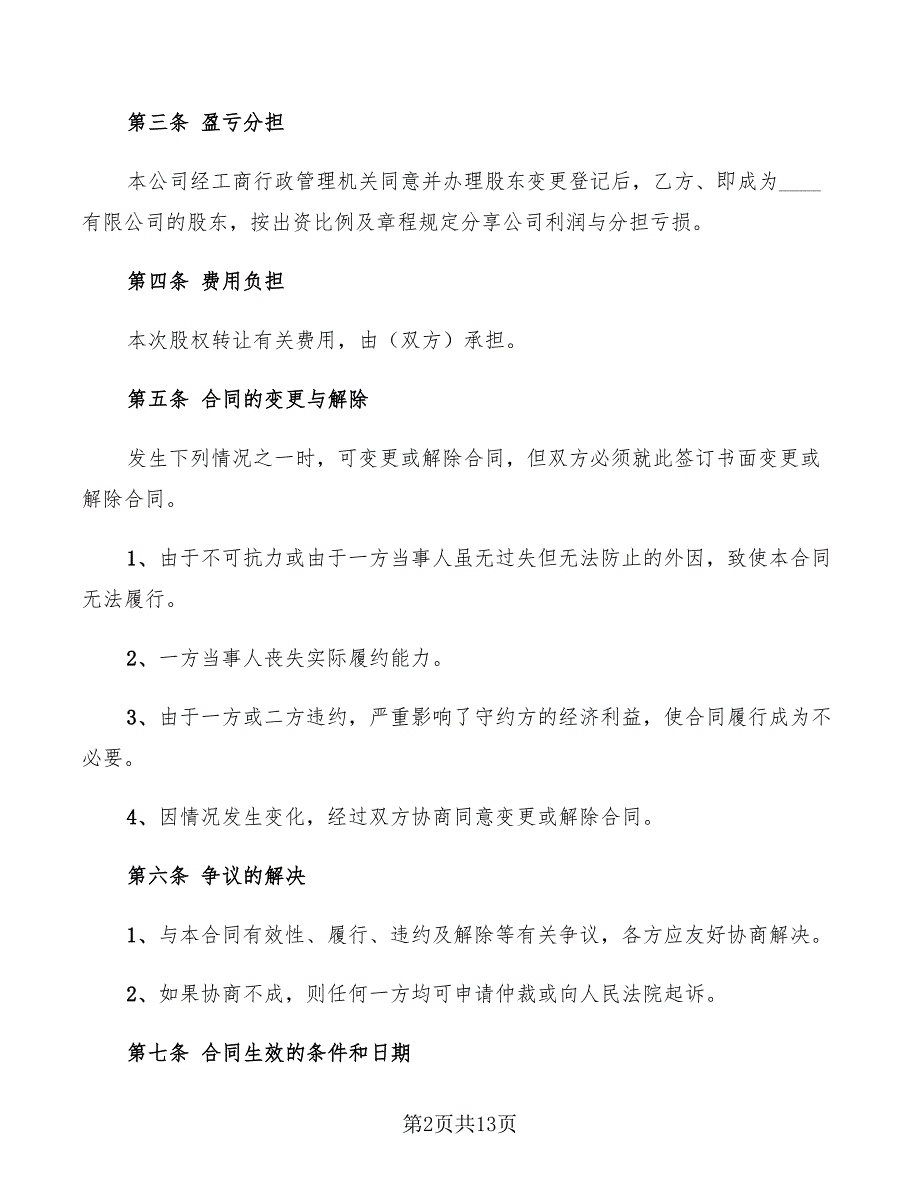 第三条 盈亏分担
本公司经工商行政管理机关同意并办理股东变更登记后，乙方、即成为____
有限公司的股东，按出资比例及章程规定分享公司利润与分担亏损。
第四条 费用负担
本次股权转让有关费用，由（双方）承担。
第五条 合同的变更与解除
发生下列情况之一时，可变更或解除合同，但双方必须就此签订书面变更或
解除合同。
1、由于不可抗力或由于一方当事人虽无过失但无法防止的外因，致使本合同
无法履行。
2、一方当事人丧失实际履约能力。
3、由于一方或二方违约，严重影响了守约方的经济利益，使合同履行成为不
必要。
4、因情况发生变化，经过双方协商同意变更或解除合同。
第六条 争议的解决
1、与本合同有效性、履行、违约及解除等有关争议，各方应友好协商解决。
2、如果协商不成，则任何一方均可申请仲裁或向人民法院起诉。
第七条 合同生效的条件和日期
第2页共13页